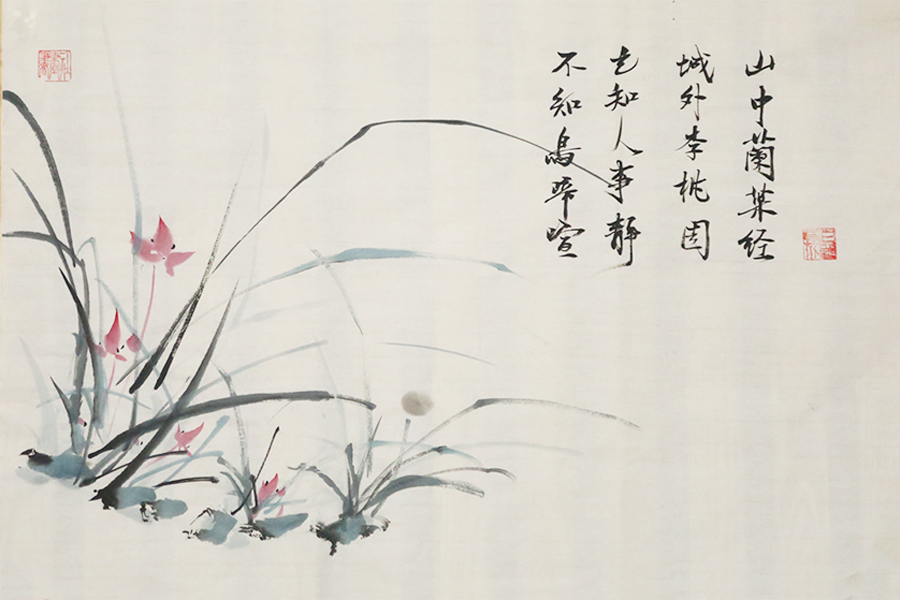 山中蘭葉经
城外李桃园
岂知人事静
不知鳥啼喧